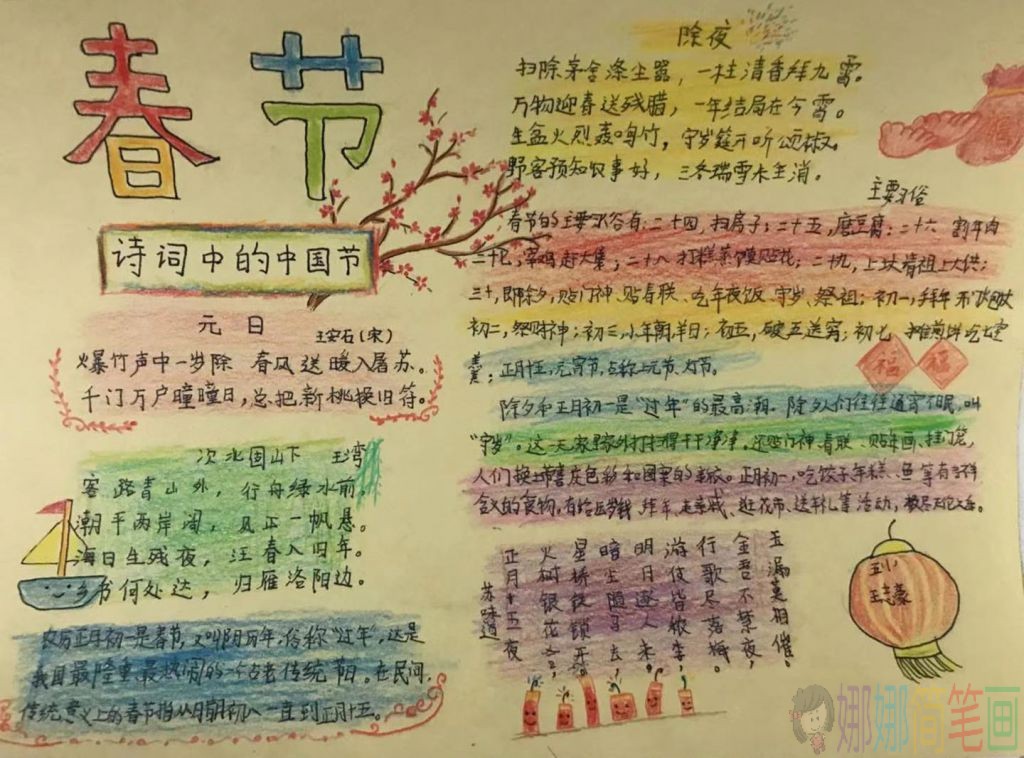 春节
诗词中的中国节
元日
王安石(宋)
爆竹声中一岁除 春风送暖入屠苏。
千门万户曈曈日,总把新桃换旧符。
次北固山下 王湾
客路青山外,行舟绿水前。
潮平两岸阔,风正一帆悬。
海日生残夜,江春入旧年。
乡书何处达,归雁洛阳边。
农历正月初一是春节,又叫阴历年,俗称“过年”,这是
我国最隆重、最热闹的一个古老传统节日。在民间,
传统意义上的春节指从腊月初八一直到正月十五。
除夜
扫除茅舍涤尘嚣,一柱清香拜九霄。
万物迎春送残腊,一年结局在今霄。
生盆火烈轰鸣竹,守岁筵开听颂椒。
野客预知农事好,三冬瑞雪未全消。
主要习俗
春节的主要习俗有:二十四,扫房子;二十五,磨豆腐;二十六 割年肉
二十七,宰鸡赶大集;二十八 打糕蒸馍贴花;二十九,上坟请祖上大供;
三十,即除夕,贴门神、贴春联、吃年夜饭、守岁、祭祖;初一,拜年
初二,祭财神;初三,小年朝,羊日;初五,破五送穷;初七,摊煎饼吃七宝
羹;正月十五,元宵节,也称上元节、灯节。
除夕和正月初一是“过年”的最高潮。除夕人们往往通宵不眠,叫
“守岁”。这一天家里家外打扫得干干净净,还贴门神、春联、贴年画、挂门笼,
人们换上带喜庆色彩和图案的新衣。正月初一,吃饺子、年糕、鱼等有吉祥
含义的食物,有给压岁钱、拜年、走亲戚、逛花市、送年礼等活动,
福
福
正月十五夜
苏味道
火树银花合,
星桥铁锁开。
暗尘随马去,
明月逐人来。
游伎皆秾李,
行歌尽落梅。
金吾不禁夜,
玉漏莫相催。
娜娜简笔画